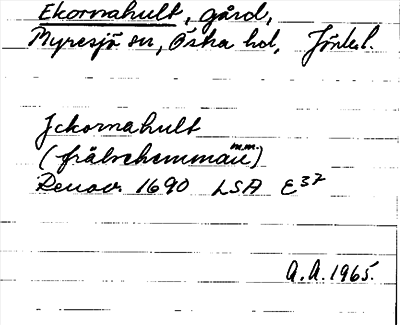 Ekornahult, gård,
Myresjö sn, Östra hd, Jönk.l.
Ickornahult
m.m.
(frälsehemman)
Renov. 1690 LSA E37
A.A. 1965.